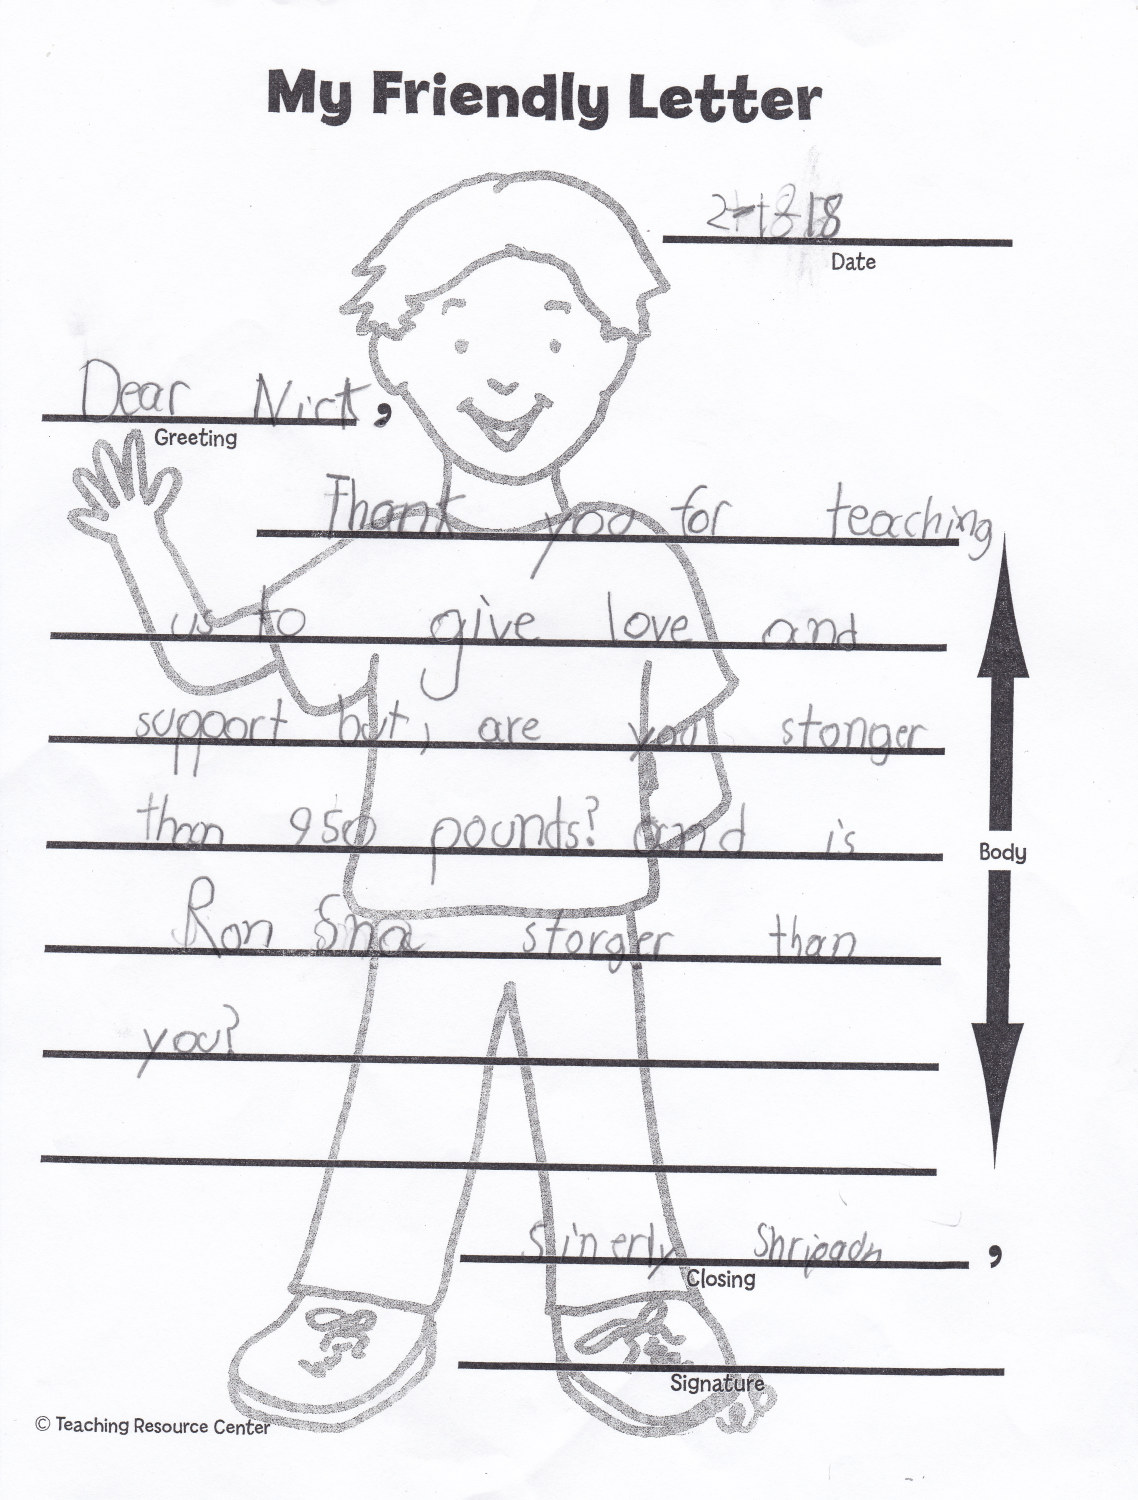 My Friendly Letter
2-18-18
Date
Dear Nick,
Greeting
Thank you for teaching
us to give love and
support but, are you stonger
than 950 pounds? and is
Ron Sna storger than
you?
Body
Sinerly Shripadn,
Closing
Signature
© Teaching Resource Center